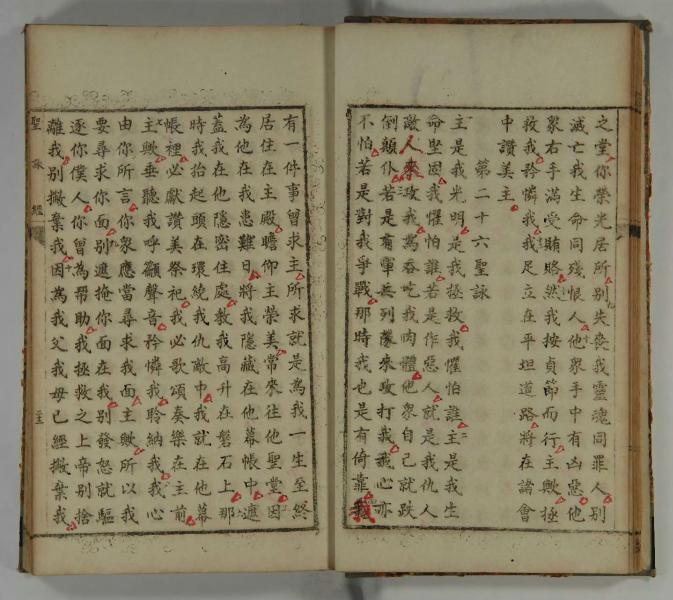 之堂你榮光居所別失喪我靈魂同罪人別
滅亡我生命同殘恨人他衆手中有凶惡他
衆右手滿受賄賂然我按貞節而行主歟拯
救我矜憐我我足立在平坦道路將在諸會
中讚美主
第二十六聖詠
主是我光明是我拯救我懼怕誰主是我生
命堅固我懼怕誰若是作惡人就是我仇人
敵人來攻我爲吞吃我肉體他衆自己就跌
倒顛仆若是有軍兵列隊來攻打我我心亦
不怕若是對我爭戰那時我也是有倚靠
有一件事曾求主所求就是爲我一生至終
居住在主殿瞻仰主榮美常來往他聖堂因
為他在我患難日將我隱藏在他幕帳中遮
蓋我在他隱密住處教我高升在磐石上那
時我抬起頭在環繞我仇敵中我就在他幕
帳裡必獻讚美祭祀我必歌頌奏樂在主前
主歟垂聽我呼籲聲音矜憐我聆納我我心
由你所言你衆應當尋求我面主歟所以我
要尋求你面別遮掩你面在我別發怒就驅
逐你僕人你曾為帮助我拯救之上帝別捨
離我別撇棄我因爲我父我母已經撇棄我
聖詠經